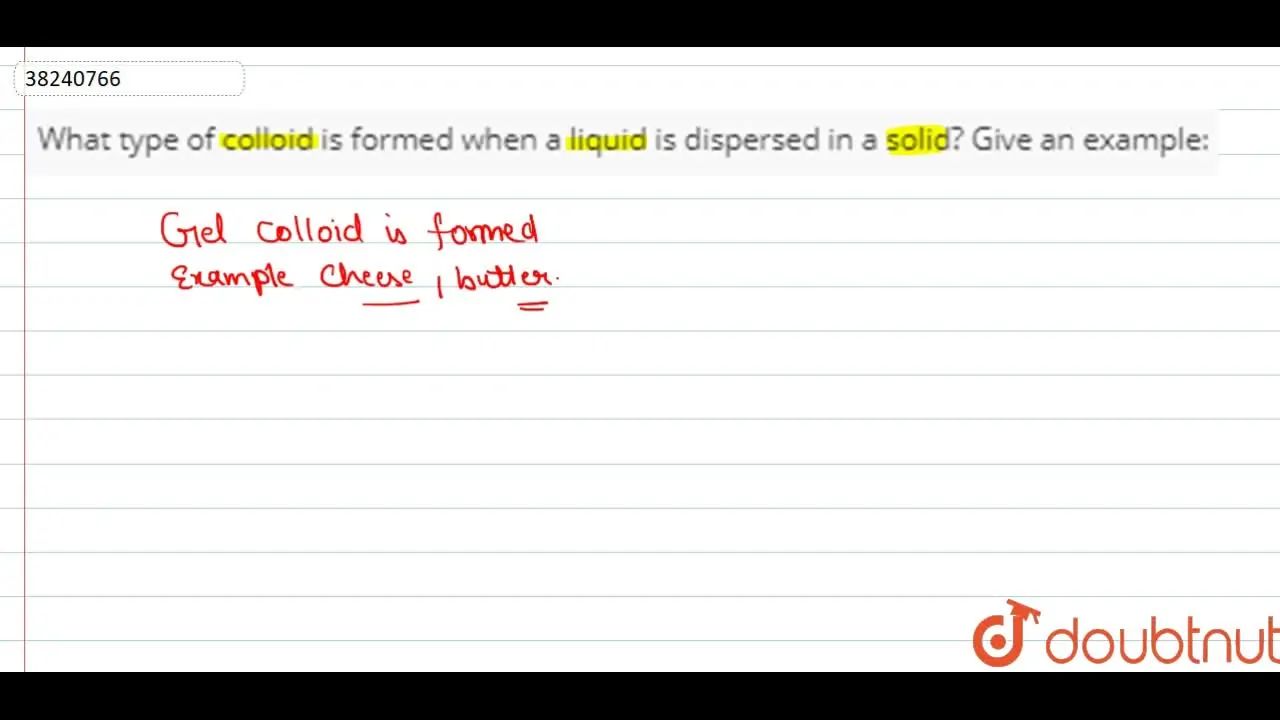 38240766
What type of colloid is formed when a liquid is dispersed in a solid? Give an example:
Gel colloid is formed
Example Cheese, butter.
doubtnut